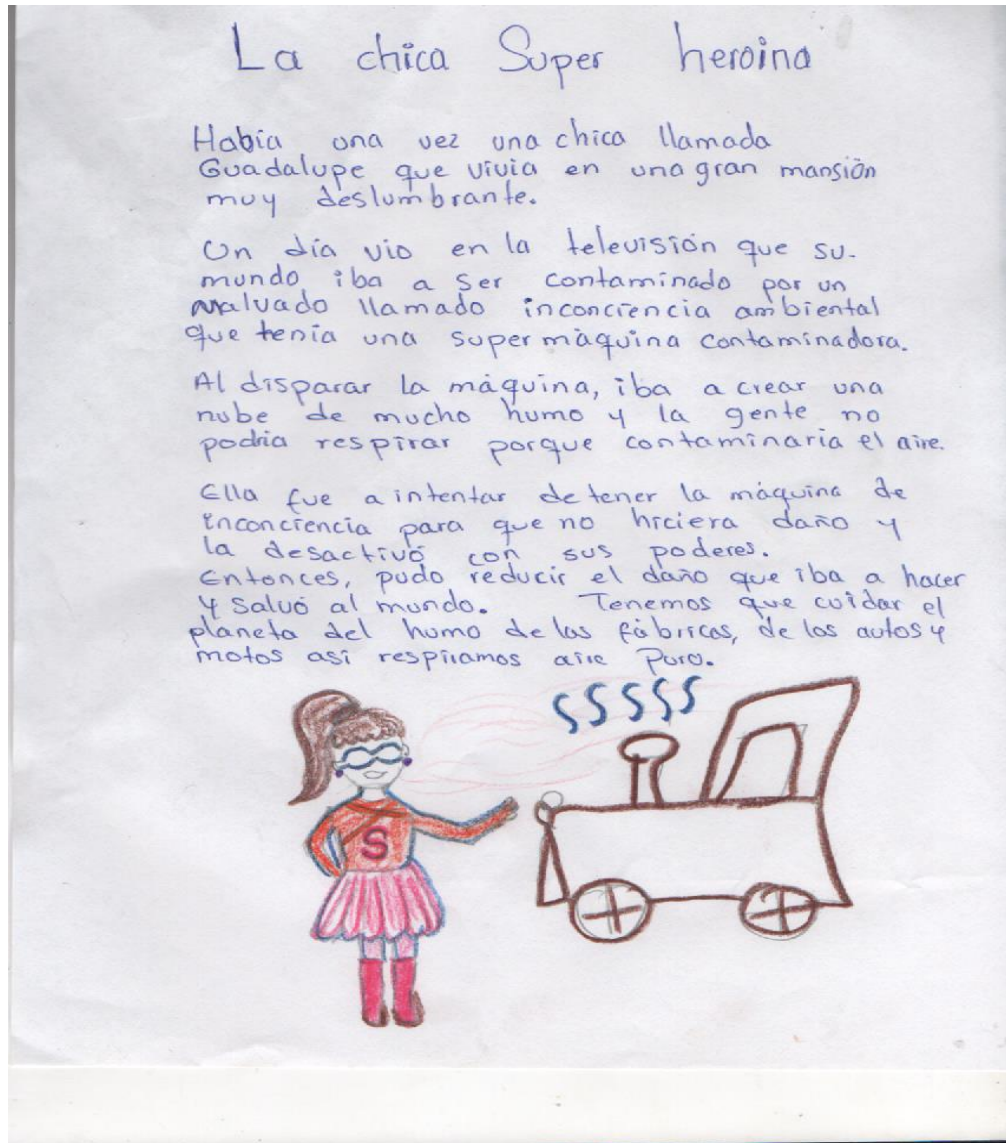 La chica Super heroina
Había una vez una chica llamada
Guadalupe que vivia en una gran mansión
muy deslumbrante.
Un día vio en la televisión que su
mundo iba a ser contaminado por un
malvado llamado inconciencia ambiental
que tenia una super máquina contaminadora.
Al disparar la máquina, iba a crear una
nube de mucho humo y la gente no
podria respirar porque contaminaria el aire.
Ella fue a intentar detener la máquina de
inconciencia para que no hiciera daño y
la desactivó con sus poderes.
Entonces, pudo reducir el daño que iba a hacer
y salvó al mundo. Tenemos que cuidar el
planeta del humo de las fábricas, de los autos y
motos asi respiramos aire puro.
SSSSS
S